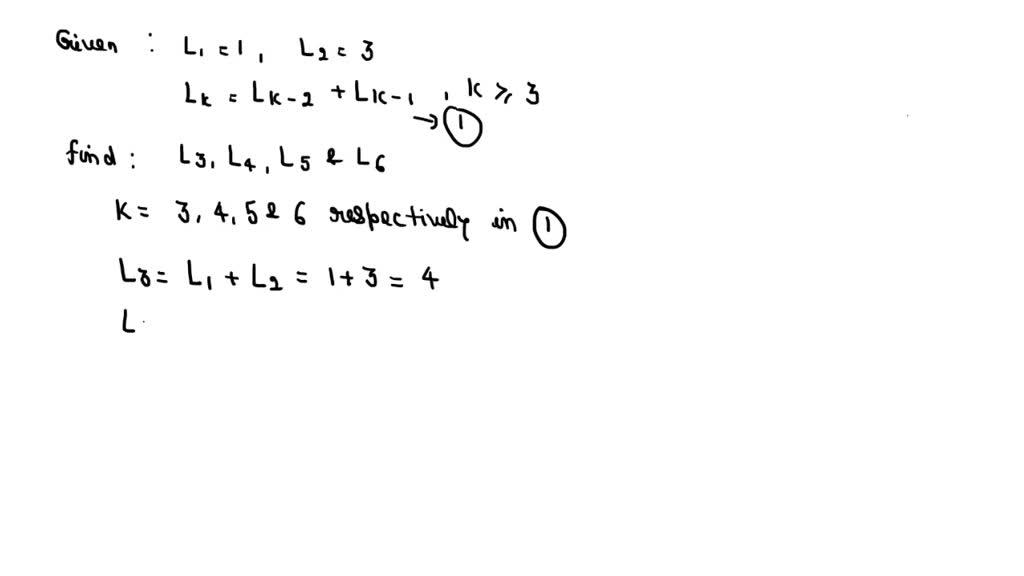 Given : L₁ = 1, L₂ = 3
Lₖ = Lₖ₋₂ + Lₖ₋₁ , k ⩾ 3
→ ①
find : L₃, L₄, L₅ & L₆
K = 3, 4, 5 & 6 respectively in ①
L₃ = L₁ + L₂ = 1 + 3 = 4
L